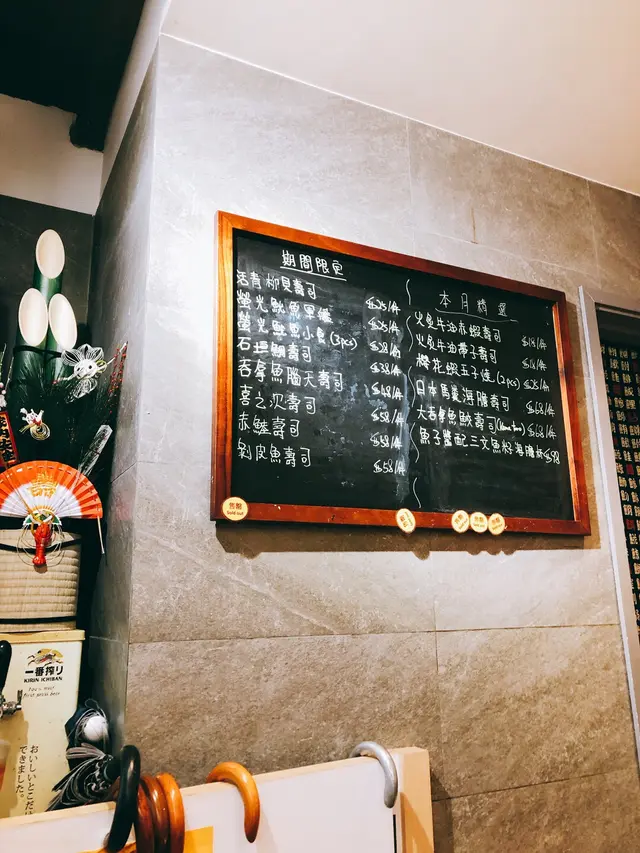 期間限定
活青柳貝壽司 $25/件
螢光魷魚軍艦 $25/件
螢光魷魚小食(3pcs) $28/件
石垣鯛壽司 $38/件
吞拿魚腦天壽司 $48/件
喜之次壽司 $58/件
赤鯥壽司 $58/件
剝皮魚壽司 $58/件
本月精選
火炙牛油赤蝦壽司 $18/件
火炙牛油帶子壽司 $18/件
櫻花蝦玉子燒(2pcs) $25/件
日本馬糞海膽壽司 $68/件
大吞拿魚鮫壽司 $68/件
魚子醬配三文魚籽海膽杯 $98
售罄
Sold out
一番搾り
KIRIN ICHIBAN
おいしいとこだけ
できました。